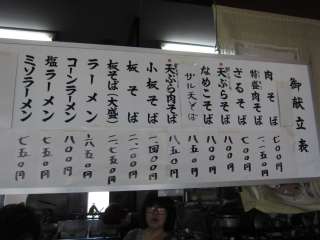 御献立表
肉そば 七〇〇円
特盛肉そば 一、一五〇円
ざるそば 七〇〇円
天ぷらそば 八〇〇円
なめこそば 八〇〇円
ザル天そば
天ぷら肉そば 八五〇円
小板そば 一、四〇〇円
板そば 二、一〇〇円
板そば(大盛) 二、七五〇円
ラーメン 六五〇円
コーンラーメン 八〇〇円
塩ラーメン 七五〇円
ミソラーメン 七五〇円